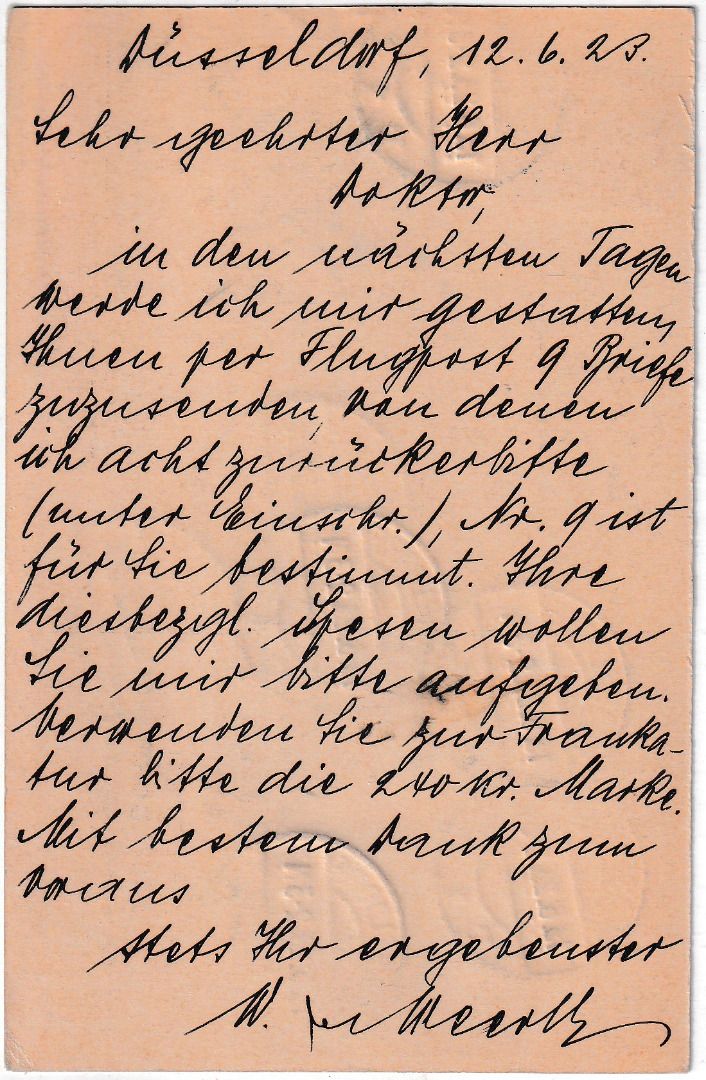 Düsseldorf, 12. 6. 23.
Sehr geehrter Herr
Doktor,
in den nächsten Tagen
werde ich mir gestatten,
Ihnen per Flugpost 9 Briefe
zuzusenden, von denen
ich acht zurückerbitte
(unter Einschr.), Nr. 9 ist
für Sie bestimmt. Ihre
diesbezgl. Spesen wollen
Sie mir bitte aufgeben.
Verwenden Sie zur Franka-
tur bitte die 240 Kr. Marke.
Mit bestem Dank zum
voraus
stets Ihr ergebenster
W.